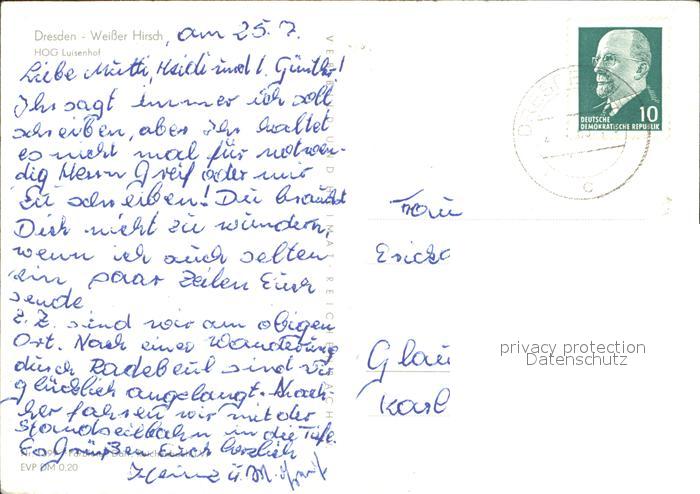 Dresden - Weißer Hirsch
HOG Luisenhof
am 25.7.
Liebe Mutti, Heidi und l. Günther!
Ihr sagt immer ich soll
schreiben, aber Ihr haltet
es nicht mal für notwen-
dig Herrn Greif oder mir
zu schreiben! Du brauchst
Dich nicht zu wundern,
wenn ich auch selten
ein paar Zeilen Euch
sende
Z.Z. sind wir am obigen
Ort. Nach einer Wanderung
durch Radebeul sind wir
glücklich angelangt. Nach-
her fahren wir mit der
Standseilbahn in die Tiefe.
Es Grüßen Euch herzlich
Heinz u.
EVP DM 0,20
VERLAG UND HEIMAT REICHENBACH
10
DEUTSCHE
DEMOKRATISCHE REPUBLIK
DRESDEN
c
Frau
Erick
Glau
Karl
privacy protection
Datenschutz